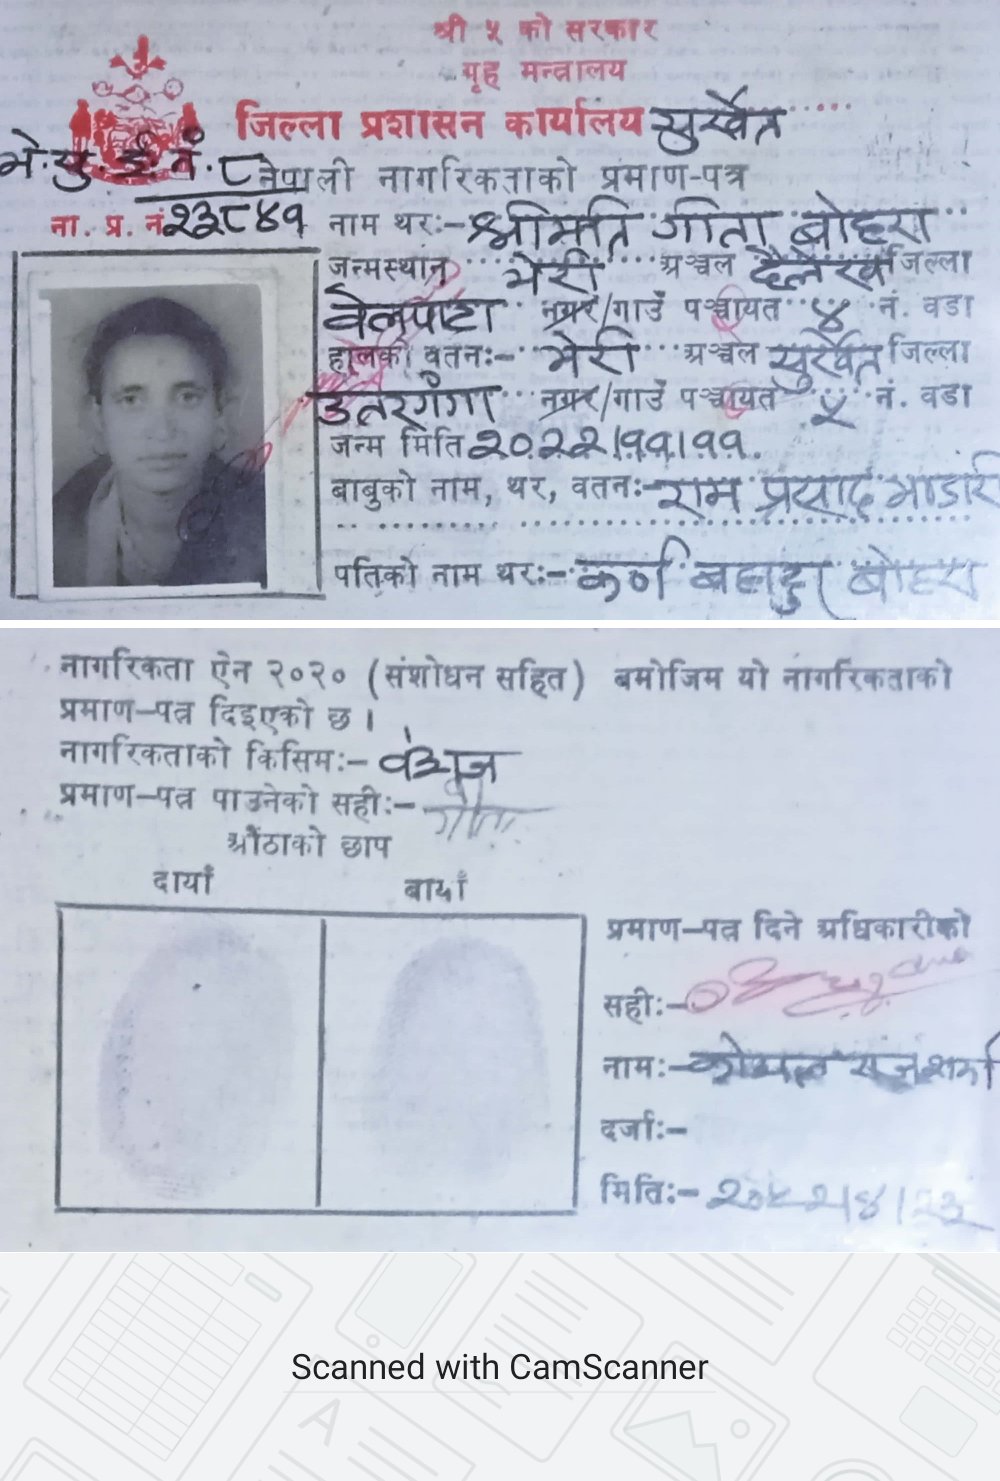 श्री ५ को सरकार
गृह मन्त्रालय
जिल्ला प्रशासन कार्यालय सुर्खेत
भे. सु. ई. नं. ८ नेपाली नागरिकताको प्रमाण-पत्र
ना. प्र. नं २३८४१ नाम थरः- श्रीमति गीता बोहरा
जन्मस्थान भेरी अञ्चल दैलेख जिल्ला
वेलपाटा नगर/गाउँ पञ्चायत ४ नं. वडा
हालको वतनः- भेरी अञ्चल सुर्खेत जिल्ला
उतरगंगा नगर/गाउँ पञ्चायत ५ नं. वडा
जन्म मिति २०२२।११।११.
बाबुको नाम, थर, वतनः- राम प्रसाद भाडारी
पतिको नाम थरः- कर्ण बहादुर बोहरा
नागरिकता ऐन २०२० (संशोधन सहित) बमोजिम यो नागरिकताको
प्रमाण-पत्र दिइएको छ ।
नागरिकताको किसिमः- वंशज
प्रमाण-पत्र पाउनेको सहीः- गीता
औंठाको छाप
दायाँ बायाँ
प्रमाण-पत्र दिने अधिकारीको
सहीः-
नामः- राज शर्मा
दर्जाः-
मितिः-
Scanned with CamScanner